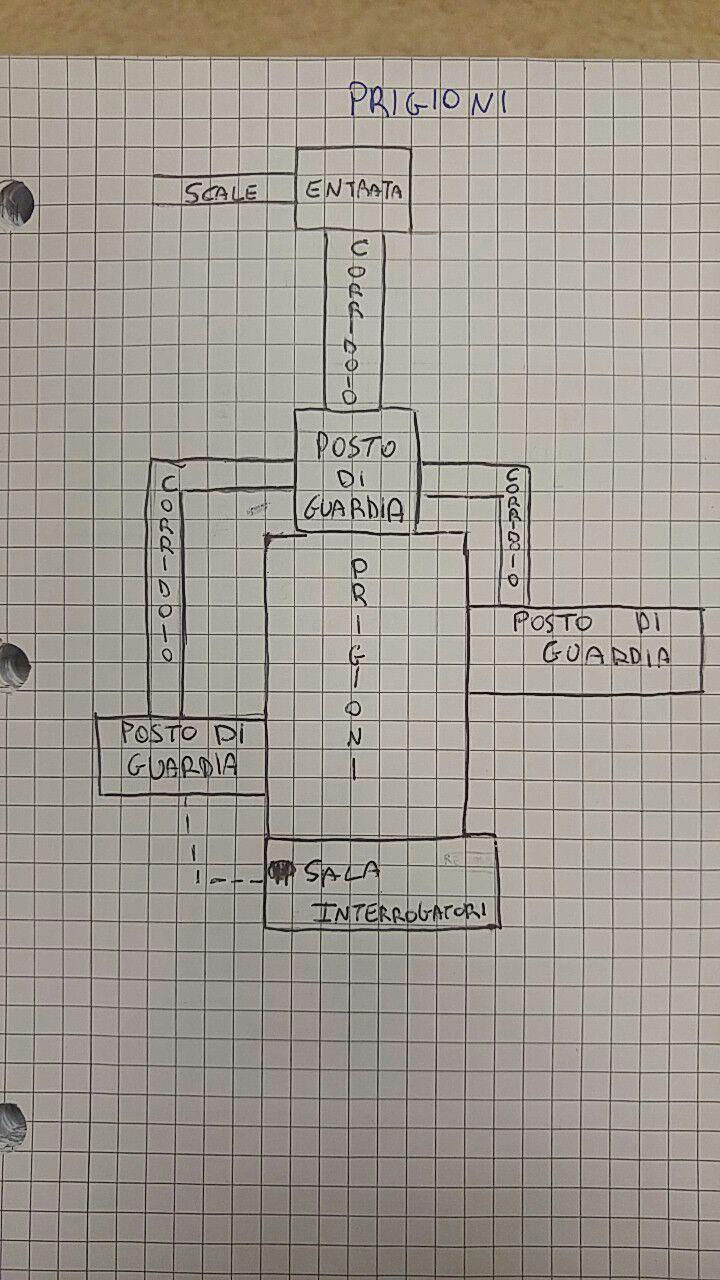 PRIGIONI
SCALE
ENTRATA
CORRIDOIO
POSTO
DI
GUARDIA
CORRIDOIO
CORRIDOIO
PRIGIONI
POSTO DI
GUARDIA
POSTO DI
GUARDIA
SALA
INTERROGATORI